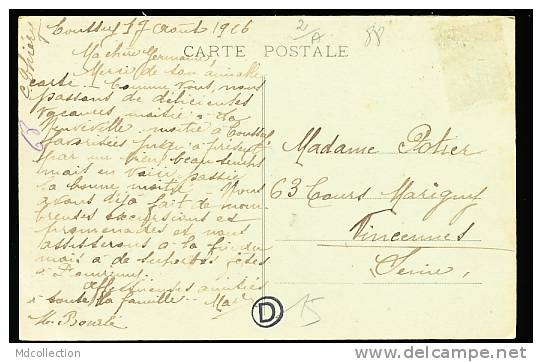 Coussey 17 août 1916
CARTE POSTALE
Ma chère Germaine,
Merci de ton aimable
carte. Comme vous, nous
passons de délicieuses
vacances, moitié à la
Neuveville, moitié à Coussey
favorisées jusqu'à présent
par un bien beau temps
mais en voici passée
la bonne moitié. Nous
avons déjà fait de nom-
breuses excursions et
promenades et nous
assisterons à la fin du
mois à de superbes fêtes
à
Affectueuses amitiés
à toute la famille.
M. Bourlé
Madame Potier
63 Cours Marigny
Vincennes
Seine,
D
15
88
Mdcollection
www.delcampe.net